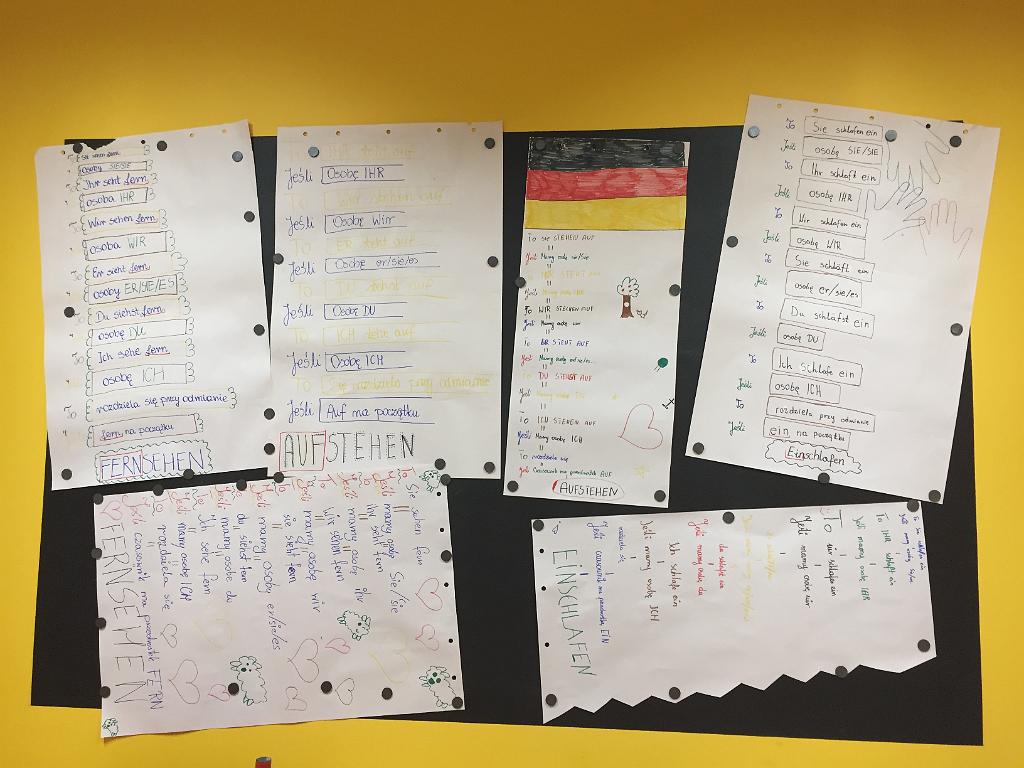 Sie sehen fern
osoby SIE/SIE
Ihr seht fern
osoba IHR
Wir sehen fern
osoba WIR
To Er sieht fern
osoby ER/SIE/ES
Du siehst fern
osobę DU
Ich sehe fern
osobę ICH
To rozdziela się przy odmianie
fern na początku
FERNSEHEN
Jeśli Osobę IHR
To Wir stehen auf
Jeśli Osobę Wir
To ER steht auf
Jeśli Osobę er/sie/es
To DU stehst auf
Jeśli Osobę DU
To ICH stehe auf
Jeśli Osobę ICH
To Się rozdziela przy odmianie
Jeśli Auf na początku
AUFSTEHEN
To sie STEHEN AUF
Jeśli Mamy osobę sie/Sie
To IHR STEHT AUF
Jeśli Mamy osobę IHR
To WIR STEHEN AUF
Jeśli Mamy osobę wir
To ER STEHT AUF
Jeśli Mamy osobę
To DU STEHST AUF
Jeśli Mamy osobę DU
To ICH STEHE AUF
Jeśli Mamy osobę ICH
To rozdziela się
Jeśli Czasownik ma przedrostek AUF
AUFSTEHEN
To Sie schlafen ein
Jeśli osobę SIE/SIE
To Ihr schlaft ein
Jeśli osobę IHR
To Wir schlafen ein
Jeśli osobę WIR
To Sie schläft ein
Jeśli osobę er/sie/es
To Du schläfst ein
Jeśli osobę DU
To Ich schlafe ein
Jeśli osobę ICH
To rozdziela przy odmianie
Jeśli ein na początku
Einschlafen
To Sie sehen fern
Jeśli mamy osobę Sie/sie
To Ihr seht fern
Jeśli mamy osobę ihr
To Wir sehen fern
Jeśli mamy osobę wir
To sie sieht fern
Jeśli mamy osoby er/sie/es
To du siehst fern
Jeśli mamy osobę du
To Ich sehe fern
Jeśli mamy osobę ICH
To rozdziela się
Jeśli czasownik ma przedrostek FERN
FERNSEHEN
To IHR schlaft ein
Jeśli mamy osobę IHR
To wir schlafen ein
Jeśli mamy osobę wir
du schläfst ein
Jeśli mamy osobę du
Ich schlafe ein
Jeśli mamy osobę ICH
rozdziela się
Jeśli czasownik ma przedrostek EIN
EINSCHLAFEN